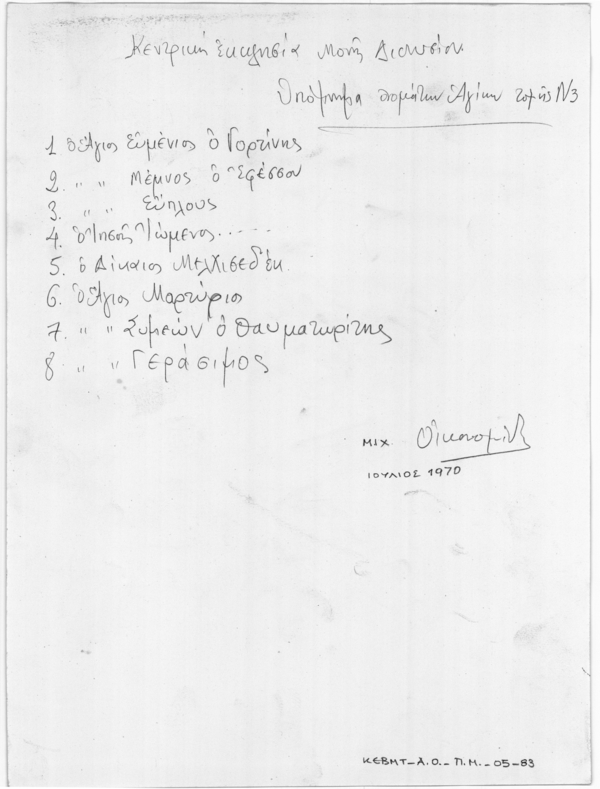 Κεντρική Ἐκκλησία Μονῆς Διονυσίου
Ὑπόμνημα Ἁγίων τομῆς Ν3
1. ὁ Ἅγιος Εὐμένιος ὁ Γορτύνης
2. " " Μέμνος ὁ Ἐφέσσου
3. " " Εὔπλους
4. ὁ .....
5. ὁ Δίκαιος Μελχισεδέκ
6. ὁ Ἅγιος Μαρτύριος
7. " " Συμεών ὁ Θαυματυρίτης
8 " " Γεράσιμος
ΜΙΧ. Οἰκονομίδης
ΙΟΥΛΙΟΣ 1970
ΚΕΒΜΤ-Α.Ο.-Π.Μ.-05-83